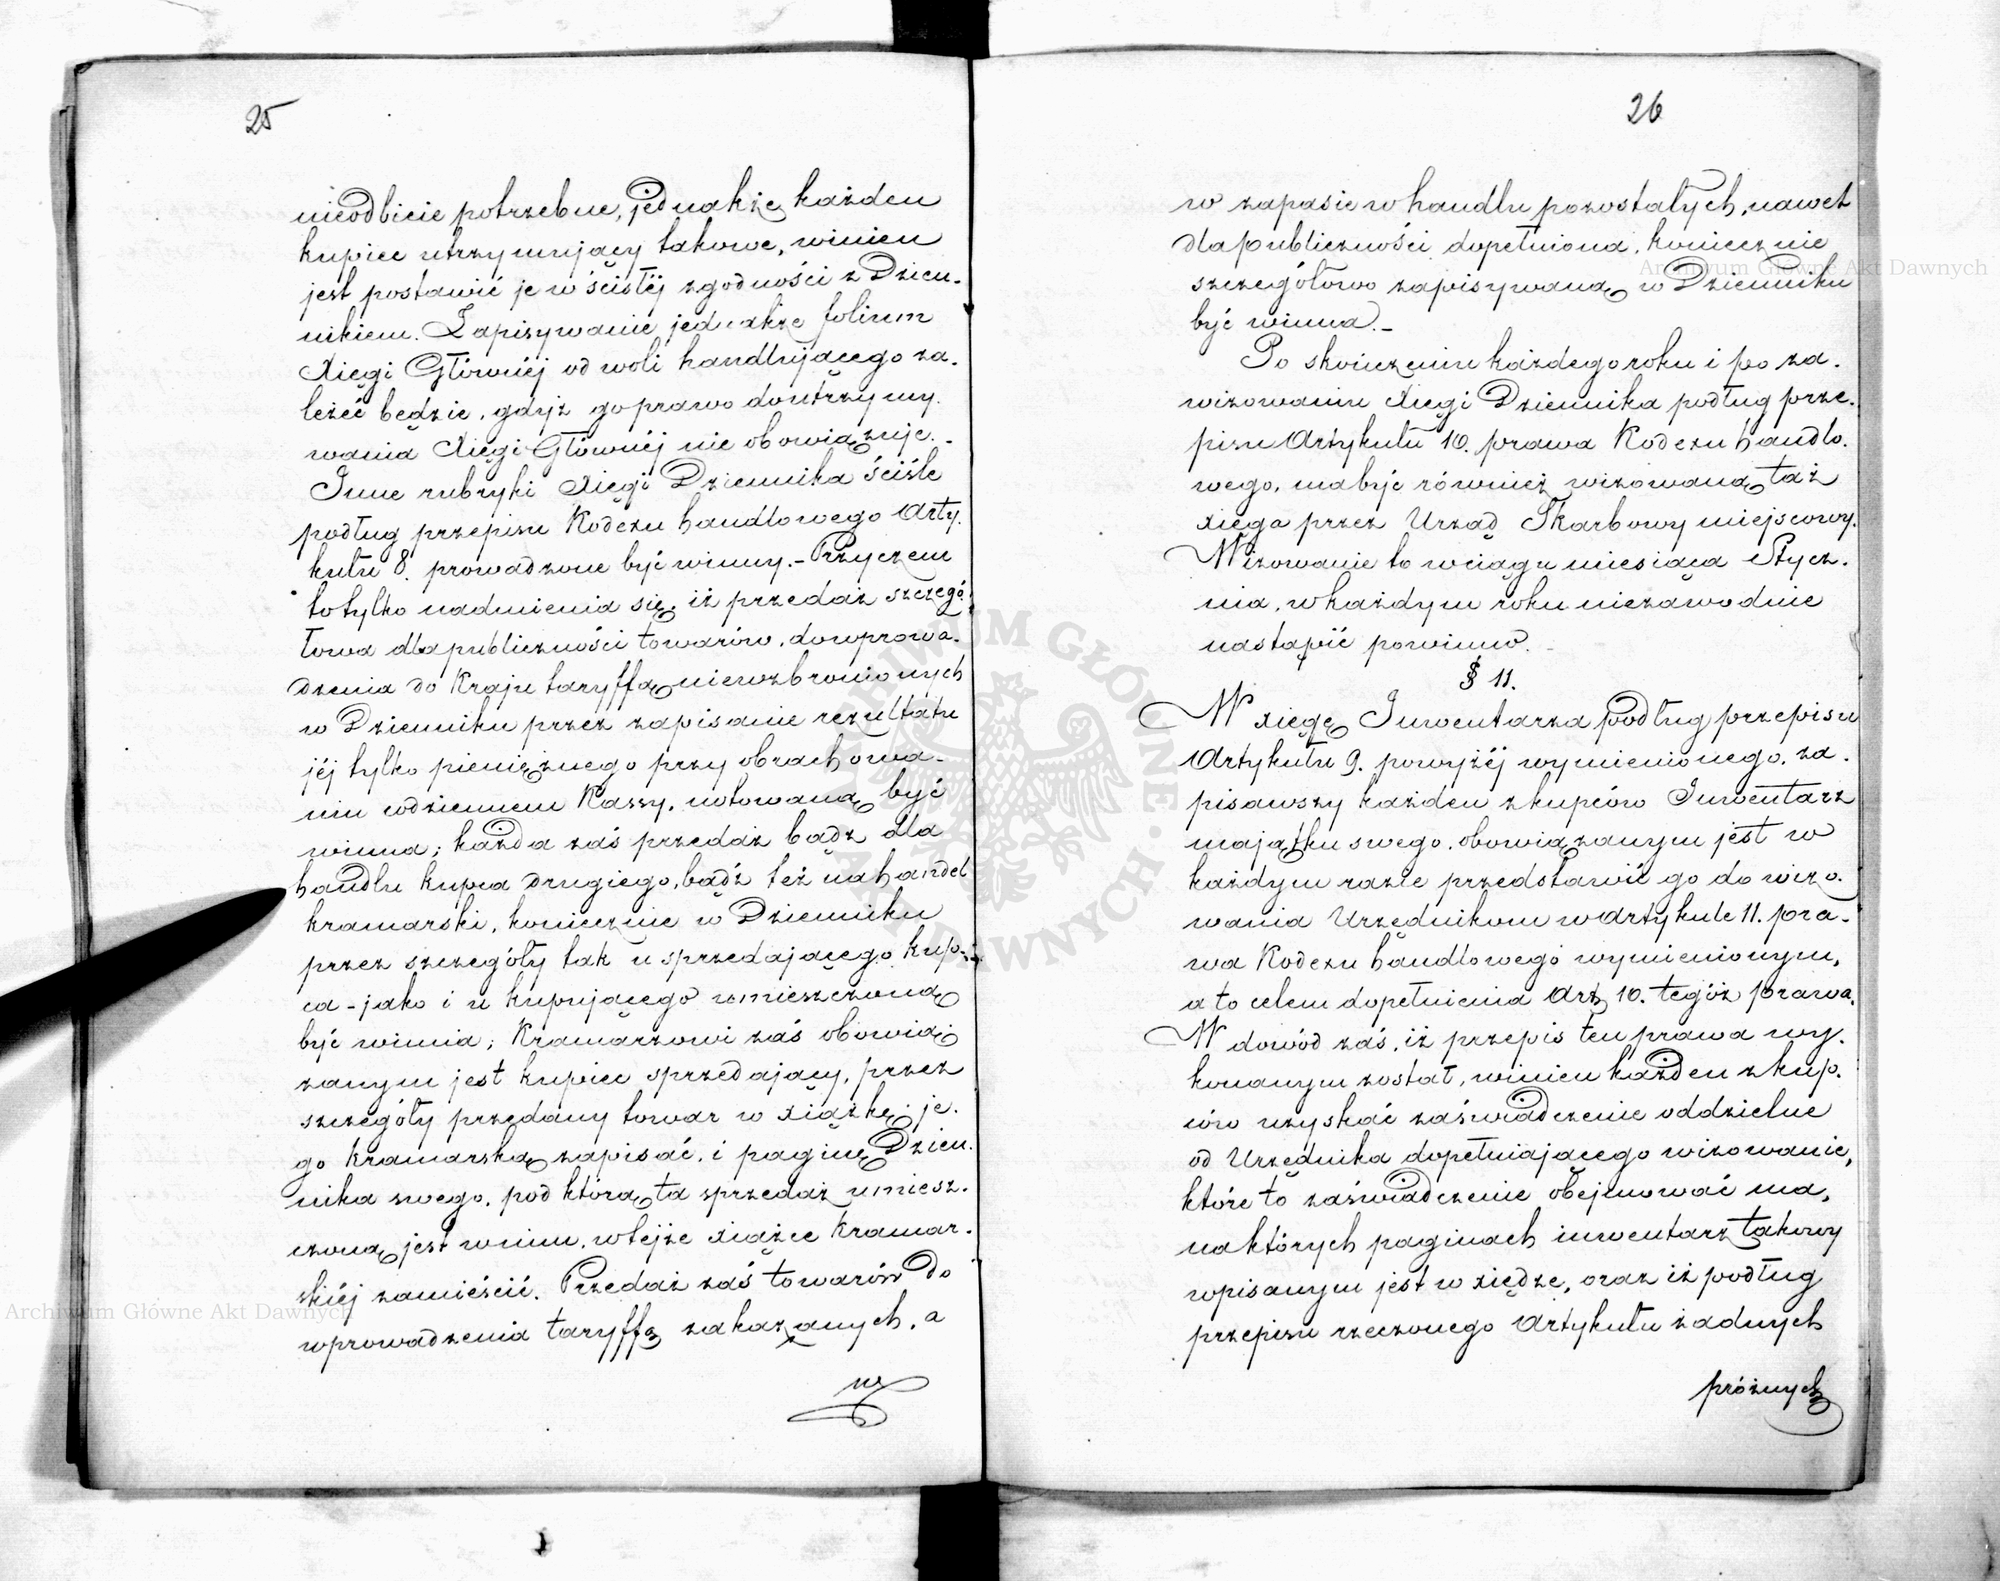 25
nieodbicie potrzebne, jednakże każden
kupiec utrzymujący takowe, winien
jest postawić je w ścisłéj zgodności z Dzien-
nikiem. Zapisywanie jednakże folium
Xięgi Głównéj od woli handlującego za-
leżeć będzie, gdyż go prawo do utrzymy-
wania Xięgi Głównéj nie obowiązuje.-
Inne rubryki Xięgi Dziennika ściśle
podług przepisu Kodexu handlowego Arty-
kułu 8. prowadzone być winny.- Przyczem
to tylko nadmienia się, iż przedaż szczegó-
łowa dla publiczności towarów, do wprowa-
dzenia do Kraju taryffą niewzbronionych
w Dzienniku przez zapisanie rezultatu
jéj tylko pieniężnego przy obrachowa-
niu codziennem Kassy, notowaną być
winna; każda zaś przedaż bądź dla
handlu kupca drugiego, bądź też na handel
kramarski, koniecznie w Dzienniku
przez szczegóły tak u sprzedającego kup-
ca - jako i u kupującego umieszczoną
być winna; Kramarzowi zaś obowią-
zanym jest kupiec sprzedający, przez
szczegóły przedany towar w xiążkę je-
go kramarską zapisać, i paginę Dzien-
nika swego, pod którą ta sprzedaż umiesz-
czoną jest w nim, w tejże xiążce kramar-
skiéj zamieścić. Przedaż zaś towarów do
wprowadzenia taryffą zakazanych, a
w
26
w zapasie w handlu pozostałych, nawet
dla publiczności dopełniona, koniecznie
szczegółowo zapisywaną w Dzienniku
być winna.-
Po skończeniu każdego roku i po za-
wizowaniu Xięgi Dziennika podług prze-
pisu Artykułu 10. prawa Kodexu handlo-
wego, ma być również wizowaną taż
xięga przez Urząd Skarbowy miejscowy.
Wizowanie to w ciągu miesiąca Stycz-
nia, w każdym roku niezawodnie
nastąpić powinno.-
§ 11.
W xięgę Inwentarza podług przepisu
Artykułu 9. powyżéj wymienionego, za-
pisawszy każden z kupców Inwentarz
majątku swego, obowiązanym jest w
każdym razie przedstawić go do wizo-
wania Urzędnikom w Artykule 11. pra-
wa Kodexu handlowego wymienionym,
a to celem dopełnienia Art. 10. tegóż prawa.
W dowód zaś, iż przepis ten prawa wy-
konanym został, winien każden z kup-
ców uzyskać zaświadczenie oddzielne
od Urzędnika dopełniającego wizowanie,
które to zaświadczenie obejmować ma,
na których paginach inwentarz takowy
wpisanym jest w xiędze, oraz iż podług
przepisu rzeczonego Artykułu żadnych
próżnych
Archiwum Główne Akt Dawnych
Archiwum Główne Akt Dawnych
ARCHIWUM GŁÓWNE AKT DAWNYCH